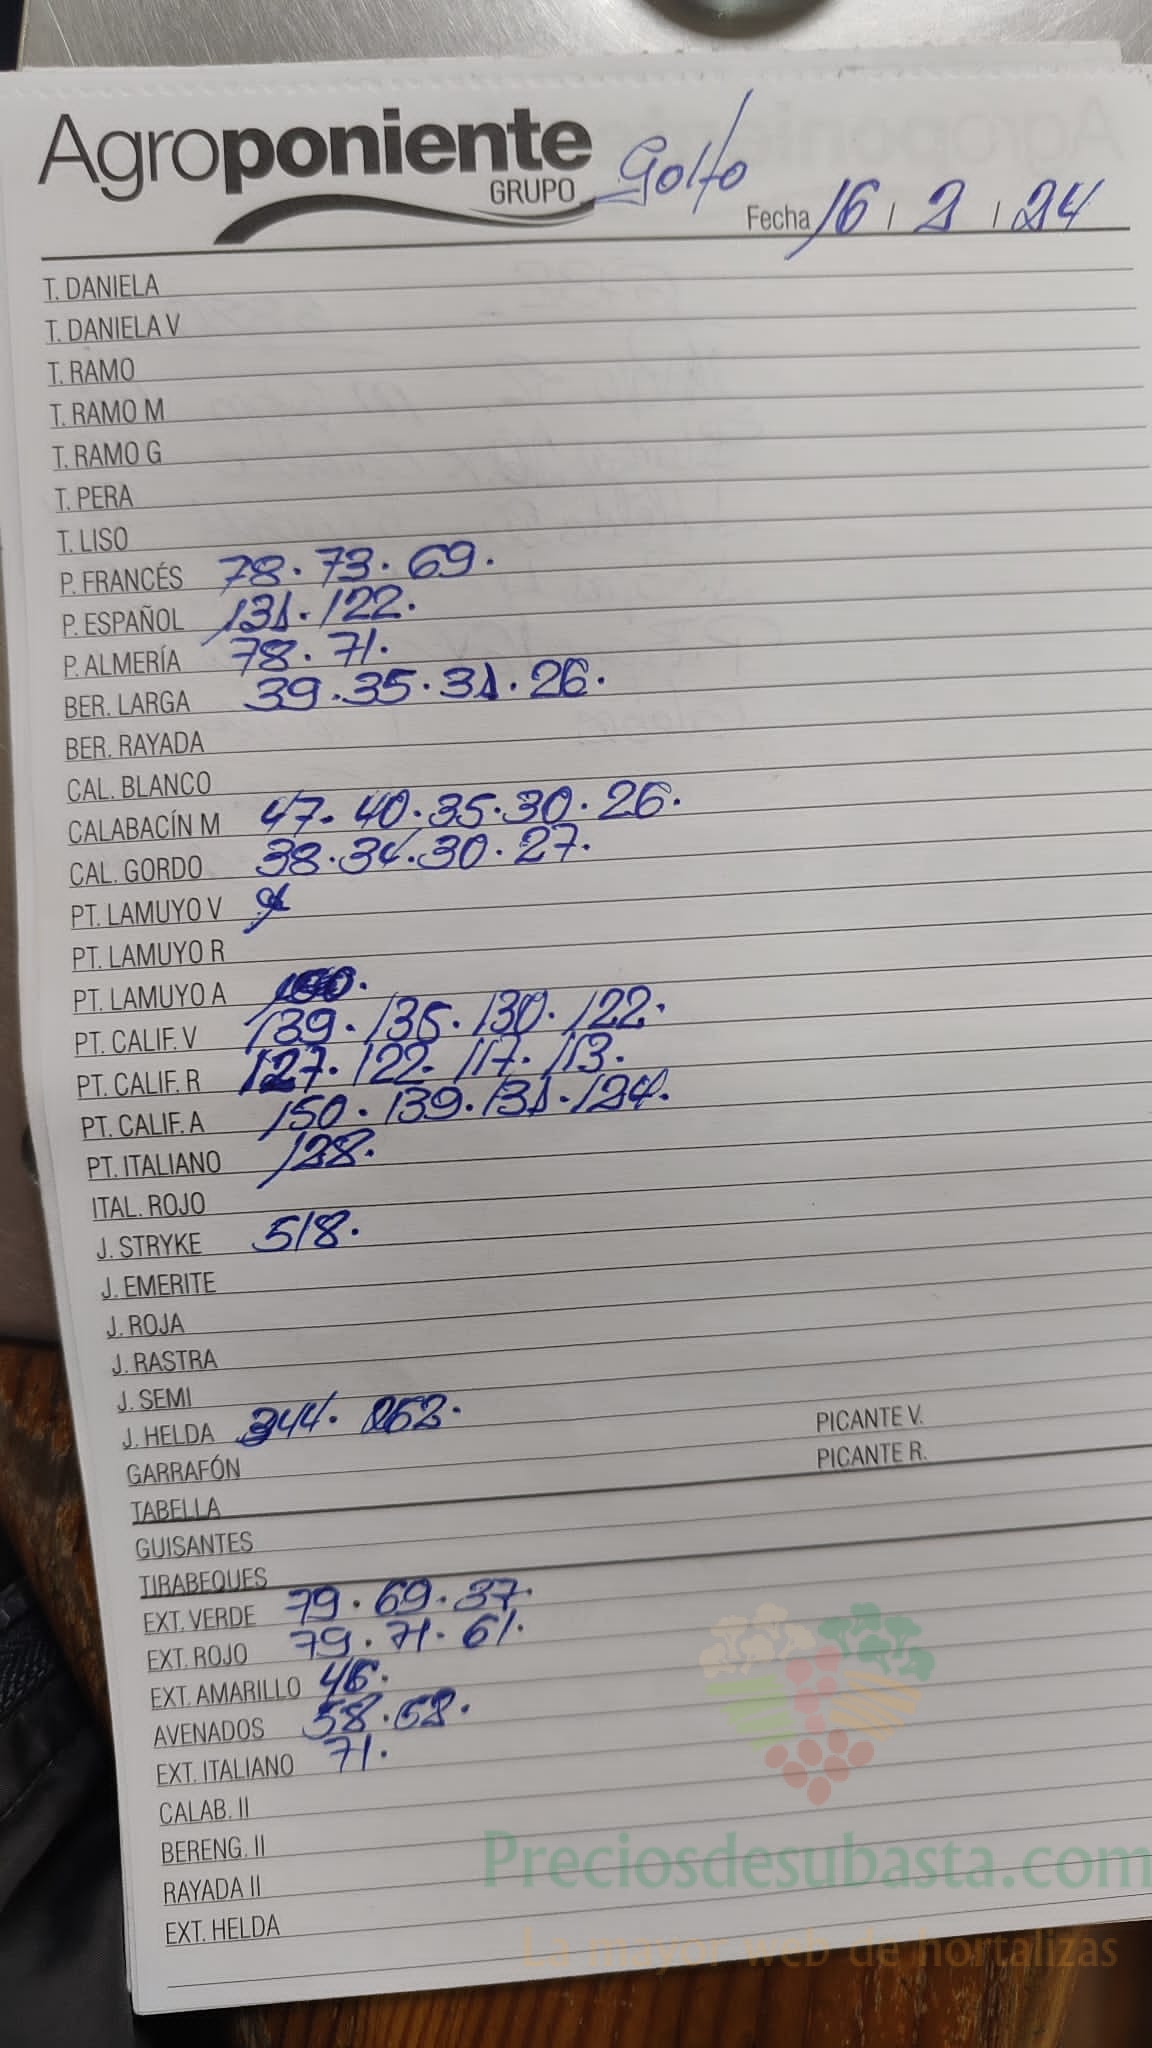 Agroponiente
GRUPO
Golfo
Fecha 16 / 2 / 24
T. DANIELA
T. DANIELA V
T. RAMO
T. RAMO M
T. RAMO G
T. PERA
T. LISO
P. FRANCÉS 78. 73. 69.
P. ESPAÑOL 131. 122.
P. ALMERÍA 78. 71.
BER. LARGA 39. 35. 31. 26.
BER. RAYADA
CAL. BLANCO
CALABACÍN M 47. 40. 35. 30. 26.
CAL. GORDO 38. 34. 30. 27.
PT. LAMUYO V
PT. LAMUYO R
PT. LAMUYO A
PT. CALIF. V 139. 135. 130. 122.
PT. CALIF. R 127. 122. 117. 113.
PT. CALIF. A 150. 139. 131. 124.
PT. ITALIANO 128.
ITAL. ROJO
J. STRYKE 518.
J. EMERITE
J. ROJA
J. RASTRA
J. SEMI
J. HELDA 344.
PICANTE V.
GARRAFÓN
PICANTE R.
TABELLA
GUISANTES
TIRABEQUES
EXT. VERDE 79. 69. 37.
EXT. ROJO 79. 71. 61.
EXT. AMARILLO 46.
AVENADOS 58.
EXT. ITALIANO 71.
CALAB. II
BERENG. II
RAYADA II
EXT. HELDA
Preciosdesubasta.com
La mayor web de hortalizas